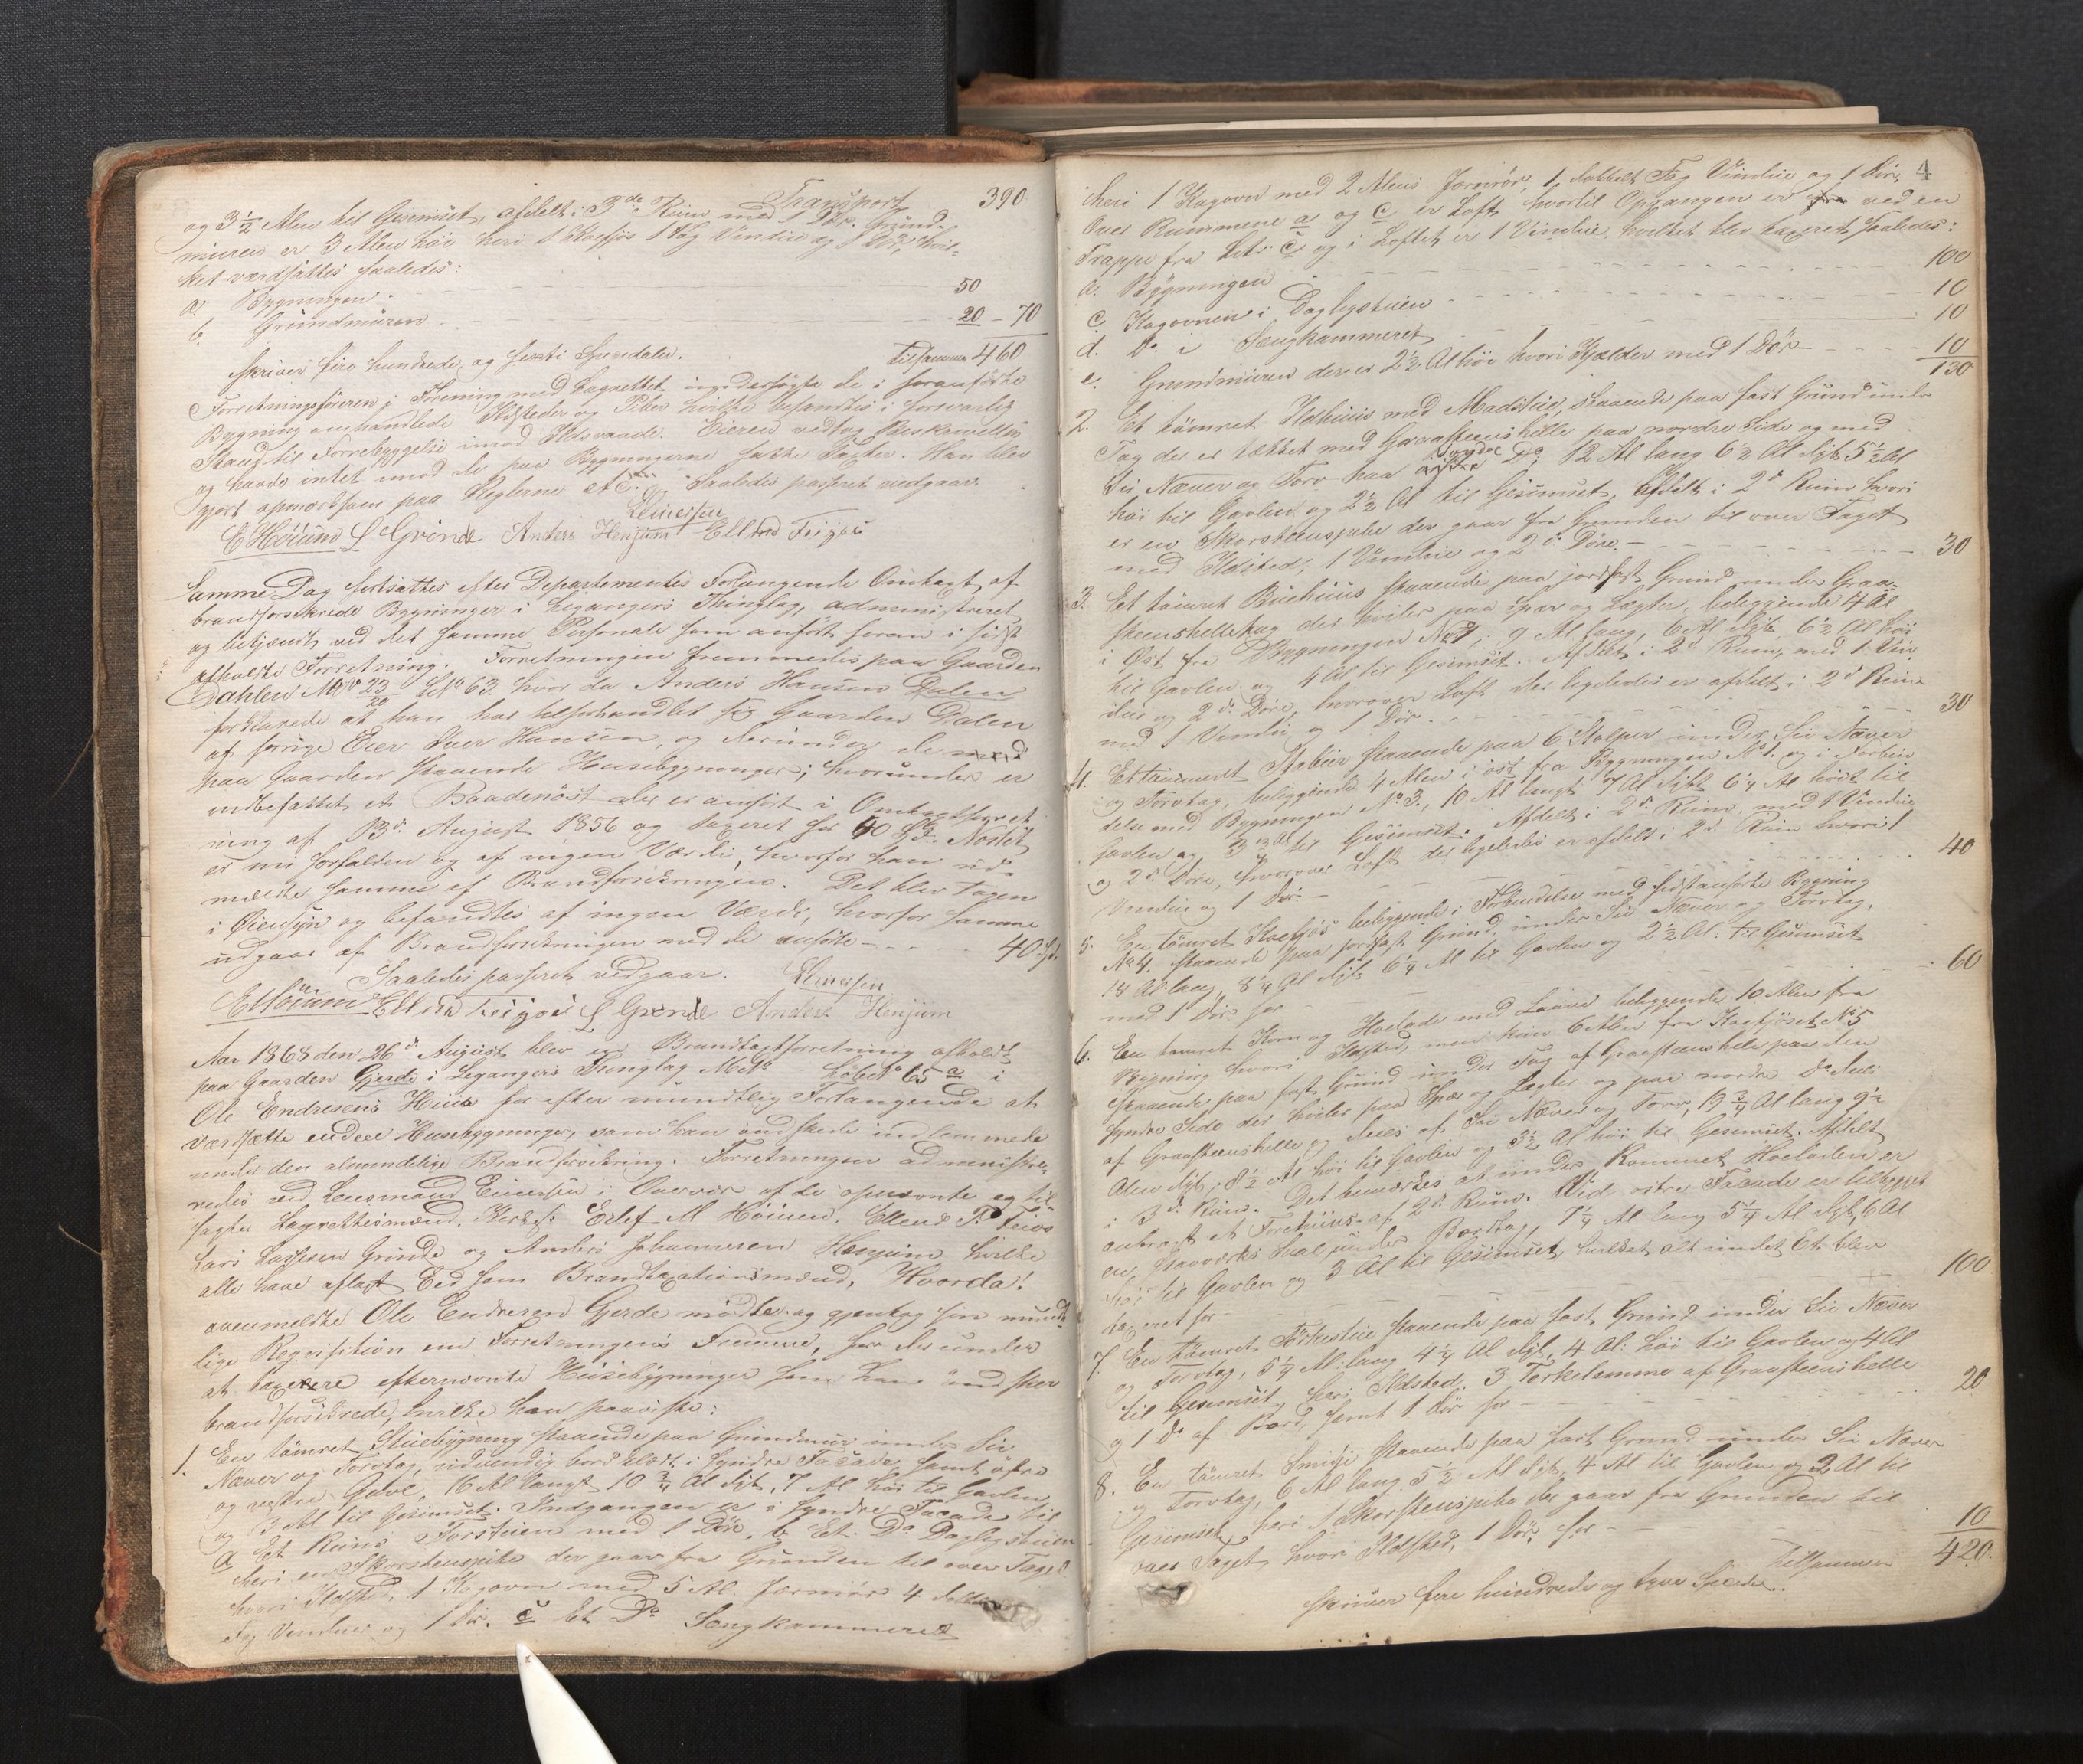 Transport 390
og 3½ Alen til Gesimset, afdelt i 3de Rum med 1 Dør. Grund-
muren er 3 Alen høi heri 1 Koefjøs 1 Fag Vindue og 1 Dør, hvil-
ket værdsattes saaledes:
a. Bygningen 50
b. Grundmuren 20 – 70
Tilsammen 460
skriver fire hundrede og sexti Speciedaler.
Forretningsføreren i Forening med Lagrettet undersøgte de i foranførte
Bygning omhandlede Ildsteder og Piber hvilke befandtes i forsvarlig
Stand til Forrebyggelse imod Ildsvaade. Eieren vedtog Beskrivelsen
og havde intet imod de paa Bygningerne satte Taxter. Han blev
gjort opmærksom paa Reglerne etc. Saaledes passeret vedgaar.
Einersen
E Høium L Grinde Anders Henjum Ellend Feigos
Samme Dag fortsattes efter Departementets Forlangende Omtaxt af
brandforsikrede Bygninger i Leganger Thinglag, administreret
og betjendt ved det samme Personale som anført foran i sidst
afholdte Forretning. Forretningen fremmedes paa Gaarden
Dahlen MNo 23/20 LNo 63. hvor da Anders Hansen Dalen
forklarede at han har tilforhandlet sig Gaarden Dalen
af forrige Eier Iver Hansen, og derunder de
paa Gaarden staaende Husebygninger; hvorunder er
indbefattet et Baadenøst der er anført i Omtaxtforret
ning af 13de August 1856 og taxeret for 40 Spd. Nøstet
er nu forfalden og af ingen Værdi, hvorfor han ud-
meldte samme af Brandforsikringen. Det blev tagen
i Øiensyn og befandtes af ingen Værdi, hvorfor samme
udgaar af Brandforsikringen med de anførte - - - 40 Spd.
Saaledes passeret vedgaar. Einersen
E Høium Ellend Feigos L Grinde Anders Henjum
Aar 1868 den 26de August blev en Brandtaxtforretning afholdt
paa Gaarden Gjerde i Legangers Thinglag MNo LøbeNo 65 a i
Ole Endresens Huus for efter mundtlig Forlangende at
værdsætte endeel Husebygninger, som han ønskede indlemmede
under den almindelige Brandforsikring. Forretningen administre-
redes ved Lensmand Einersen i Overvær af de opnævnte og til-
sagte Lagrettesmænd. Navnlig: Erlef M Høium. Ellend P. Feios
Lars Larssen Grinde og Anders Johannesen Henjum hvilke
alle have aflagt Eed som Brandtaxationsmænd, Hvorda!
ovenmeldte Ole Endresen Gjerde mødte og gjentog sin mundt
lige Requisition om Forretningens Fremme, for derunder
at taxere efternævnte Husebygninger som han ønsker
brandforsikrede, hvilke han paaviste:
1. En tømret Stuebygning staaende paa Grundmur under Su
Næver og Torvtag, udvendig bordklædt i Syndre Facade samt østre
og vestre Gavl, 16 Al langt 10¾ Al dybt, 7 Al høi til Gavlen
og 3 Al til Gesimset. Indgangen er i syndre Facade til
a Et Rum Forstuen med 1 Dør, b Et Do Daglig Stuen
heri en Skorsteenspibe der gaar fra Grunden til over Taget
hvori Ildsted, 1 Kagovn med 5 Al. Jernrør 4 dobbelt
Fag Vinduer og 1 Dør. c Et Do Sengkammeret
4
heri 1 Kagovn med 2 Alens Jernrør, 1 dobbelt Fag Vindue og 1 Dør.
Over Rummene a og c er Loft hvortil Opgangen er ved en
Trappe fra Litr c og i Loftet er 1 Vindue. hvilket blev taxeret saaledes:
a. Bygningen 100
c Kagovnen i Dagligstuen 10
d. Do i Sengkammeret 10
e. Grundmuren der er 2½ Al høi hvori Kjælder med 1 Dør 10
130
2. Et tømret Ildhuus med Madstue, staaende paa fast Grund under
Tag der er tækket med Graasteenshelle paa nordre Side og med
Su Næver og Torv paa syndre Do, 12 Al lang 6½ Al dybt 5½ Al
høi til Gavlen og 2½ Al til Gesimset, Afdelt i 2de Rum hvori
er en Skorsteenspibe der gaar fra Grunden til over Taget
med Ildsted, 1 Vindue og 2de Døre. - - - 30
3. Et tømret Buehuus staaende paa jordfast Grund under Graa-
steenshelletag der hviler paa Spær og Lægter, beliggende 4 Al
i Øst fra Bygningen No 1, 9 Al lang, 6 Al dybt 6½ Al høi
til Gavlen og 4 Al til Gesimset. Afdelt i 2de Rum, med 1 Vin
due og 2de Døre, hvorover Loft der ligeledes er afdelt i 2de Rum
med 1 Vindue og 1 Dør. - - - 30
4. Et tømmeret Stabuur staaende paa 6 Stolper under Su Næver
og Torvtag, beliggende 4 Alen i øst fra Bygningen No 1. og i Forbin
delse med Bygningen No 3., 10 Al langt 7 Al dybt 6¼ Al høit til
Gavlen og 3½ Al til Gesimset. Afdelt i 2de Rum, med 1 Vindue
og 2de Døre, hvorover Loft der ligeledes er afdelt i 2de Rum hvori 1
Vindue og 1 Dør. - - - 40
5. En tømret Koefjøs beliggende i Forbindelse med sidstanførte Bygning
No 4. staaende paa jordfast Grund, under Su Næver og Torvtag,
18 Al. lang, 8¼ Al dybt 6¼ Al til Gavlen og 2½ Al. til Gesimset
med 1 Dør for 60
6. En tømret Korn og Hoelade med Laave beliggende 10 Alen fra
Bygning hvori Ildsted, men kun 6 Alen fra Koefjøset No 5
staaende paa fast Grund under Tag af Graasteenshele paa den
syndre Side der hviler paa Spær og Lægter og paa nordre do deels
af Graasteenshelle og deels af Su Næver og Torv, 19¾ Al lang 9½
Alen dybt, 8½ Al høi til Gavlen og 3½ Al høi til Gesimset. Afdelt
i 3de Rum. Det bemærkes at under Rommet Hoeladen er
anbragt et Forehuus af 2de Rum. Ved østre Facade er tilbygget
en Stavværks Sval under Bordtag, 7¼ Al lang 5¼ Al dybt, 6 Al
høi til Gavlen og 3 Al til Gesimset, hvilket alt under Et blev
taxeret for 100
7. En tømret Tørkestue staaende paa fast Grund under Su Næver
og Torvtag, 5¼ Al. lang 4¼ Al dybt, 4 Al. høi til Gavlen og 4 Al
til Gesimset, heri Ildsted. 3 Tørkelemme af Graasteenshelle
og 1 do af Bord, samt 1 Dør for 20
8. En tømret Smidje staaende paa fast Grund under Su Næver
og Torvtag, 6 Al lang 5½ Al dybt, 4 Al til Gavlen og 2 Al til
Gesimset, heri 1 Skorsteenspibe der gaar fra Grunden til
over Taget hvori Ildsted, 1 Dør for 10
Tilsammen 420.
skriver fire hundrede og tyve Specidr.